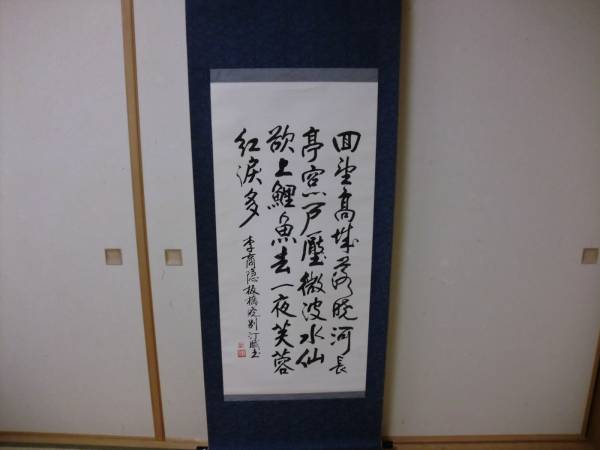 回望高城落暁河長
亭窓戸壓微波水仙
欲上鯉魚去一夜芙蓉
紅涙多
李商隠板橋暁別 汀書